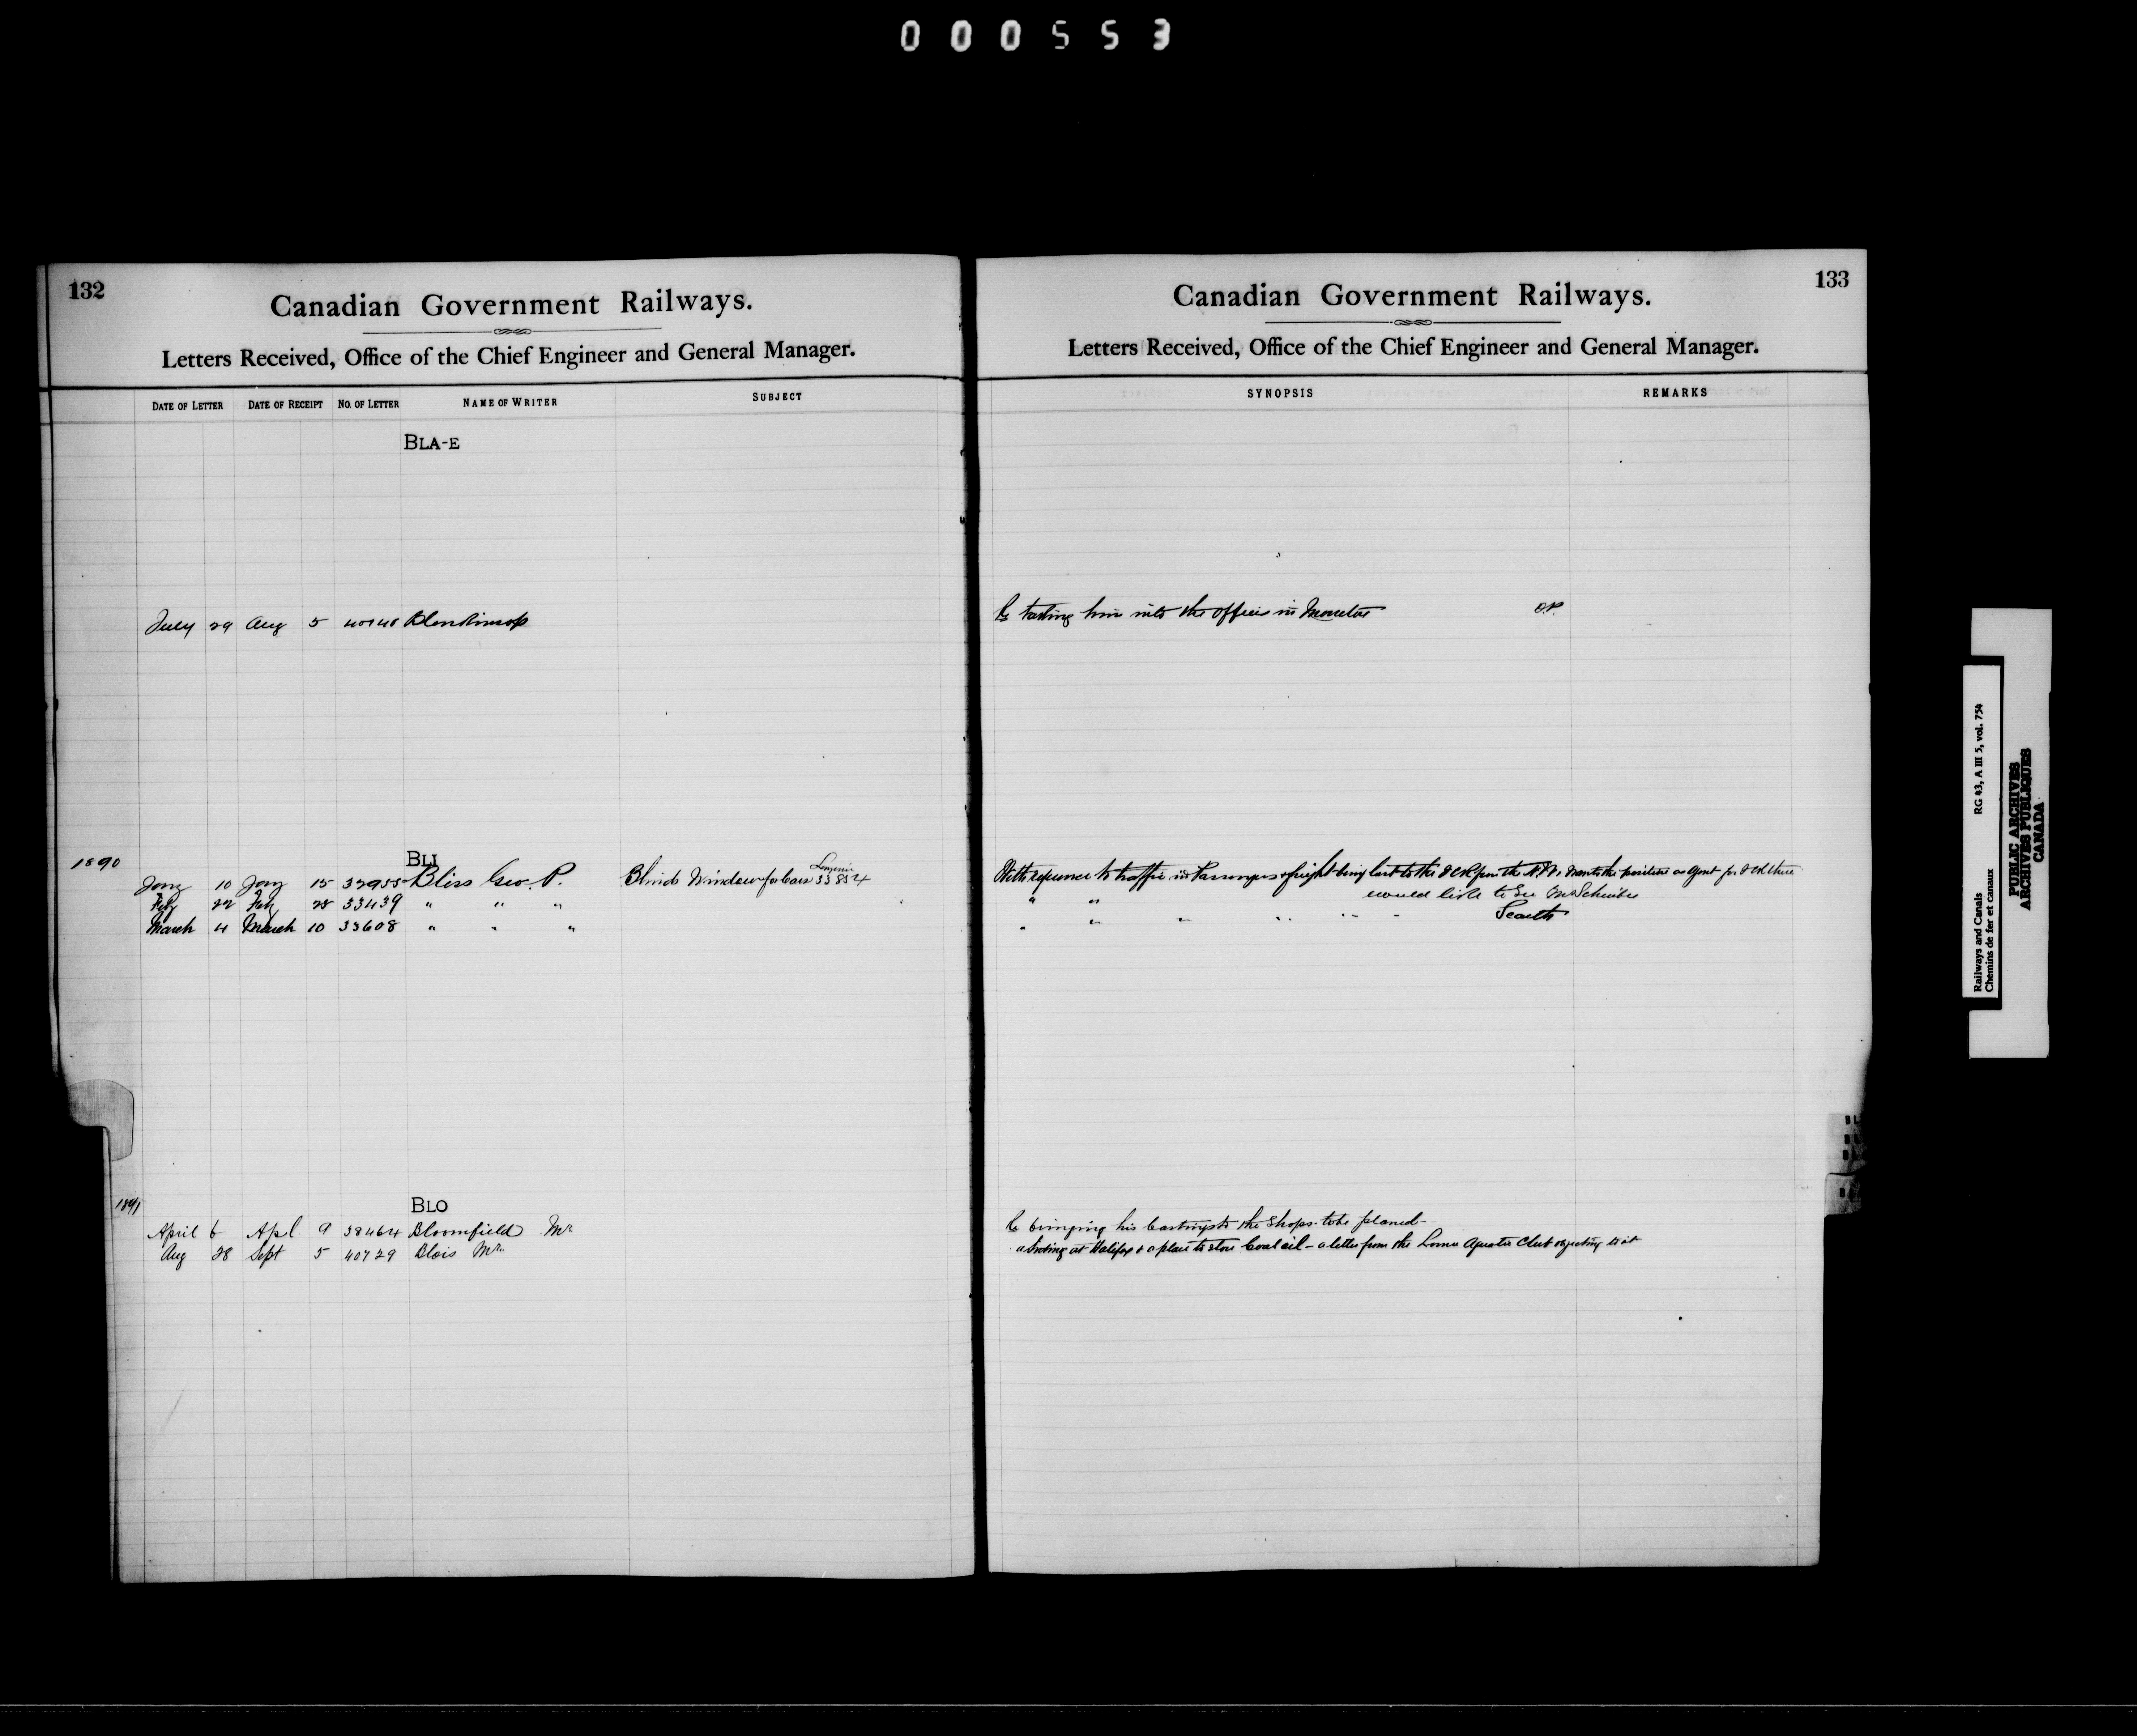 000553
132
Canadian Government Railways.
Letters Received, Office of the Chief Engineer and General Manager.
DATE OF LETTER DATE OF RECEIPT NO. OF LETTER NAME OF WRITER SUBJECT
BLA-E
July 29 Aug 5 40148 Blenkinsop
1890
BLI
Jany 10 Jany 15 32955 Bliss Geo. P. Blinds Window for Cars 33854
Feby 22 Feby 28 33439 " " "
March 4 March 10 33608 " " "
1891
BLO
April 6 Apl. 9 38464 Bloomfield Mr
Aug 28 Sept 5 40729 Blois Mr
133
Canadian Government Railways.
Letters Received, Office of the Chief Engineer and General Manager.
SYNOPSIS REMARKS
Re taking him into the offices in Moncton O.P.
With reference to traffic in Passengers & freight being lost to the I C R from the the position as Agent for I C R there
" " would like to see Mr Schreiber
" " " " " "
Re bringing his Castings to the Shops to be planed -
at Halifax & a place to store Coal oil - a letter from the Lorne Aquatic Club objecting to it
Railways and Canals RG 43, A III 5, vol. 754
Chemins de fer et canaux
PUBLIC ARCHIVES
ARCHIVES PUBLIQUES
CANADA